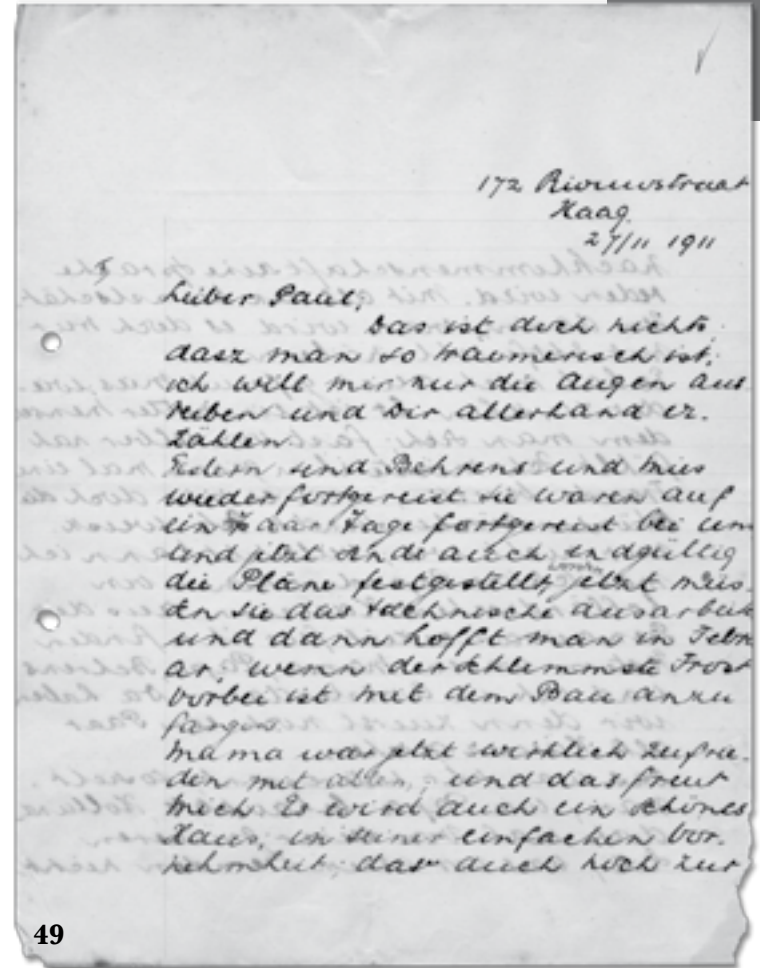 172 Riouwstraat
Haag.
27/11 1911
Lieber Paul,
Das ist doch nichts,
dasz man so traumerisch ist;
ich will mir nur die Augen aus
reiben und Dir allerhand er.
zählen.
Gestern sind Behrens und Mies
wieder fortgereist sie waren auf
ein Paar Tage bei uns
und jetzt sind auch endgültig
die Pläne festgestellt worden, jetzt müs.
en sie das technische ausarbeit
und dann hofft man in Febru
ar, wenn der schlimmste Frost
vorbei ist mit dem Bau anzu
fangen.
Mama war jetzt wirklich zufrie.
den mit allem, und das freut
mich. Es wird auch ein schönes
Haus, in seiner einfachen Vor.
nehmheit, das auch noch zur
49